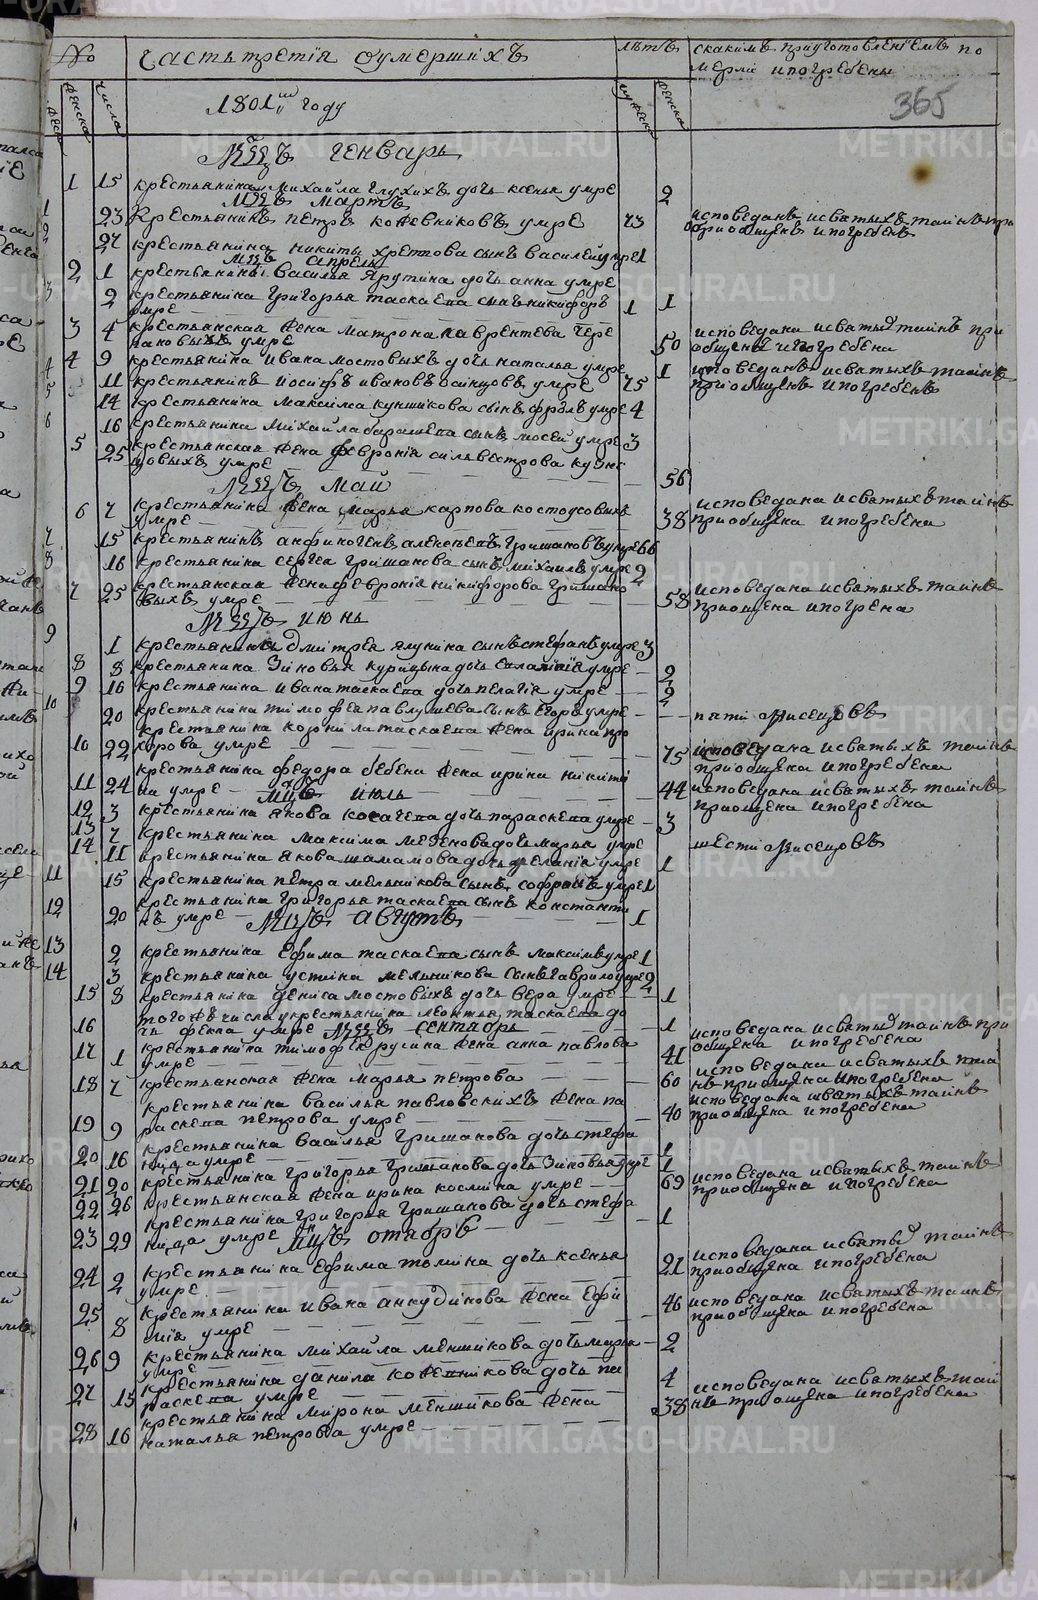 № часть третія оумершихъ лѣтъ скакимъ приуготовленіемъ по
мерли и погребены
мужеска женска числа 1801го году мужеска женска 365
Мцъ генварь
1 15 крестьянина михайла глухихъ дочь ксенья умре 2
Мцъ мартъ
1 23 крестьянинъ петръ кожевниковъ умре 73 исповеданъ исвятыхъ таинъ при
общенъ ипогребенъ
2 27 крестьянина никиты сынъ василей умре 1
Мцъ апрель
2 1 крестьянина василья ярутина дочь анна умре 1
3 2 крестьянина григорья таскаева сынъ никифоръ
умре 1
3 4 крестьянская жена матрона лаврентева чере
пановыхъ умре 50 исповедана исвятыхъ таинъ при
общена ипогребена
4 9 крестьянина ивана мостовыхъ дочь наталья умре 1
4 11 крестьянинъ иосифъ ивановъ осинцовъ умре 75 исповеданъ исвятыхъ таинъ
приобщенъ ипогребенъ
5 14 крестьянина максима куншикова сынъ фролъ умре 4
6 16 крестьянина михайла барашева сынъ мосей умре 3
5 25 крестьянская жена февронія сильвестрова кузне
цовыхъ умре 56
Мцъ май
6 7 крестьянина жена марья карпова костоусовыхъ
умре 38 исповедана исвятыхъ таинъ
приобщена ипогребена
7 15 крестьянинъ анфиногенъ алексеевъ гришановъ умре 66
8 16 крестьянина сергея гришанова сынъ михаилъ умре 2
7 25 крестьянская жена февронія никифорова гришано
выхъ умре 58 исповедана исвятыхъ таинъ
приощена ипогрена
Мцъ июнь
9 1 крестьянина дмитрея ялунина сынъ стефанъ умре 3
8 8 крестьянина зиновья курицына дочь умре 2
9 16 крестьянина ивана таскаева дочь пелагія умре 2
10 20 крестьянина тимофея павлушева сынъ егоръ умре пяти мисецовъ
10 22 крестьянина корнила таскаева жена ирина про
хорова умре 75 исповедана исвятыхъ таинъ
приобщена ипогребена
11 24 крестьянина федора бебена жена ирина никити
на умре 44 исповедана исвятыхъ таинъ
приощена ипогребена
Мцъ июль
12 3 крестьянина якова косачева дочь параскева умре 3
13 7 крестьянина максима меденова дочь марья умре шести мисецовъ
14 11 крестьянина якова шаламова дочь умре 1
11 15 крестьянина петра мельникова сынъ софронъ умре 1
12 20 крестьянина григорья таскаева сынъ константи
нъ умре 1
Мцъ августъ
13 2 крестьянина ефима таскаева сынъ максимъ умре 1
14 3 крестьянина устина мельникова сынъ гаврило умре 2
15 8 крестьянина дениса мостовыхъ дочь вера умре 1
16 тогожъ числа укрестьянина леонтья таскаева до
чь фекла умре 1
Мцъ сентябрь
17 1 крестьянина тимофея русина жена анна павлова
умре 41 исповедана исвятыхъ таинъ при
общена ипогребена
18 7 крестьянская жена марья петрова 60 исповедана исвятыхъ таи
нъ приобщена ипогребена
19 9 крестьянина василья павловскихъ жена па
раскева петрова умре 40 исповедана исвятыхъ таинъ
приобщена ипогребена
20 16 крестьянина василья гришанова дочь стефа
нида умре 1
21 20 крестьянина григорья гришанова дочь зиновья умре 1
22 26 крестьянская жена ирина космина умре 69 исповедана исвятыхъ таинъ
приобщена ипогребена
23 29 крестьянина григорья гришанова дочь стефа
нида умре 1
Мцъ отябръ
24 2 крестьянина ефима томина дочь ксенья
умре 21 исповедана исвятыхъ таинъ
приобщена ипогребена
25 8 крестьянина ивана анкудинова жена ефи
мія умре 46 исповедана исвятыхъ таинъ
приобщена ипогребена
26 9 крестьянина михайла меншикова дочь марья
умре 2
27 15 крестьянина данила кожевникова дочь па
раскева умре 4
28 16 крестьянина мирона меншикова жена
наталья петрова умре 38 исповедана исвятыхъ таи
нъ приощена ипогребена
METRIKI.GASO-URAL.RU